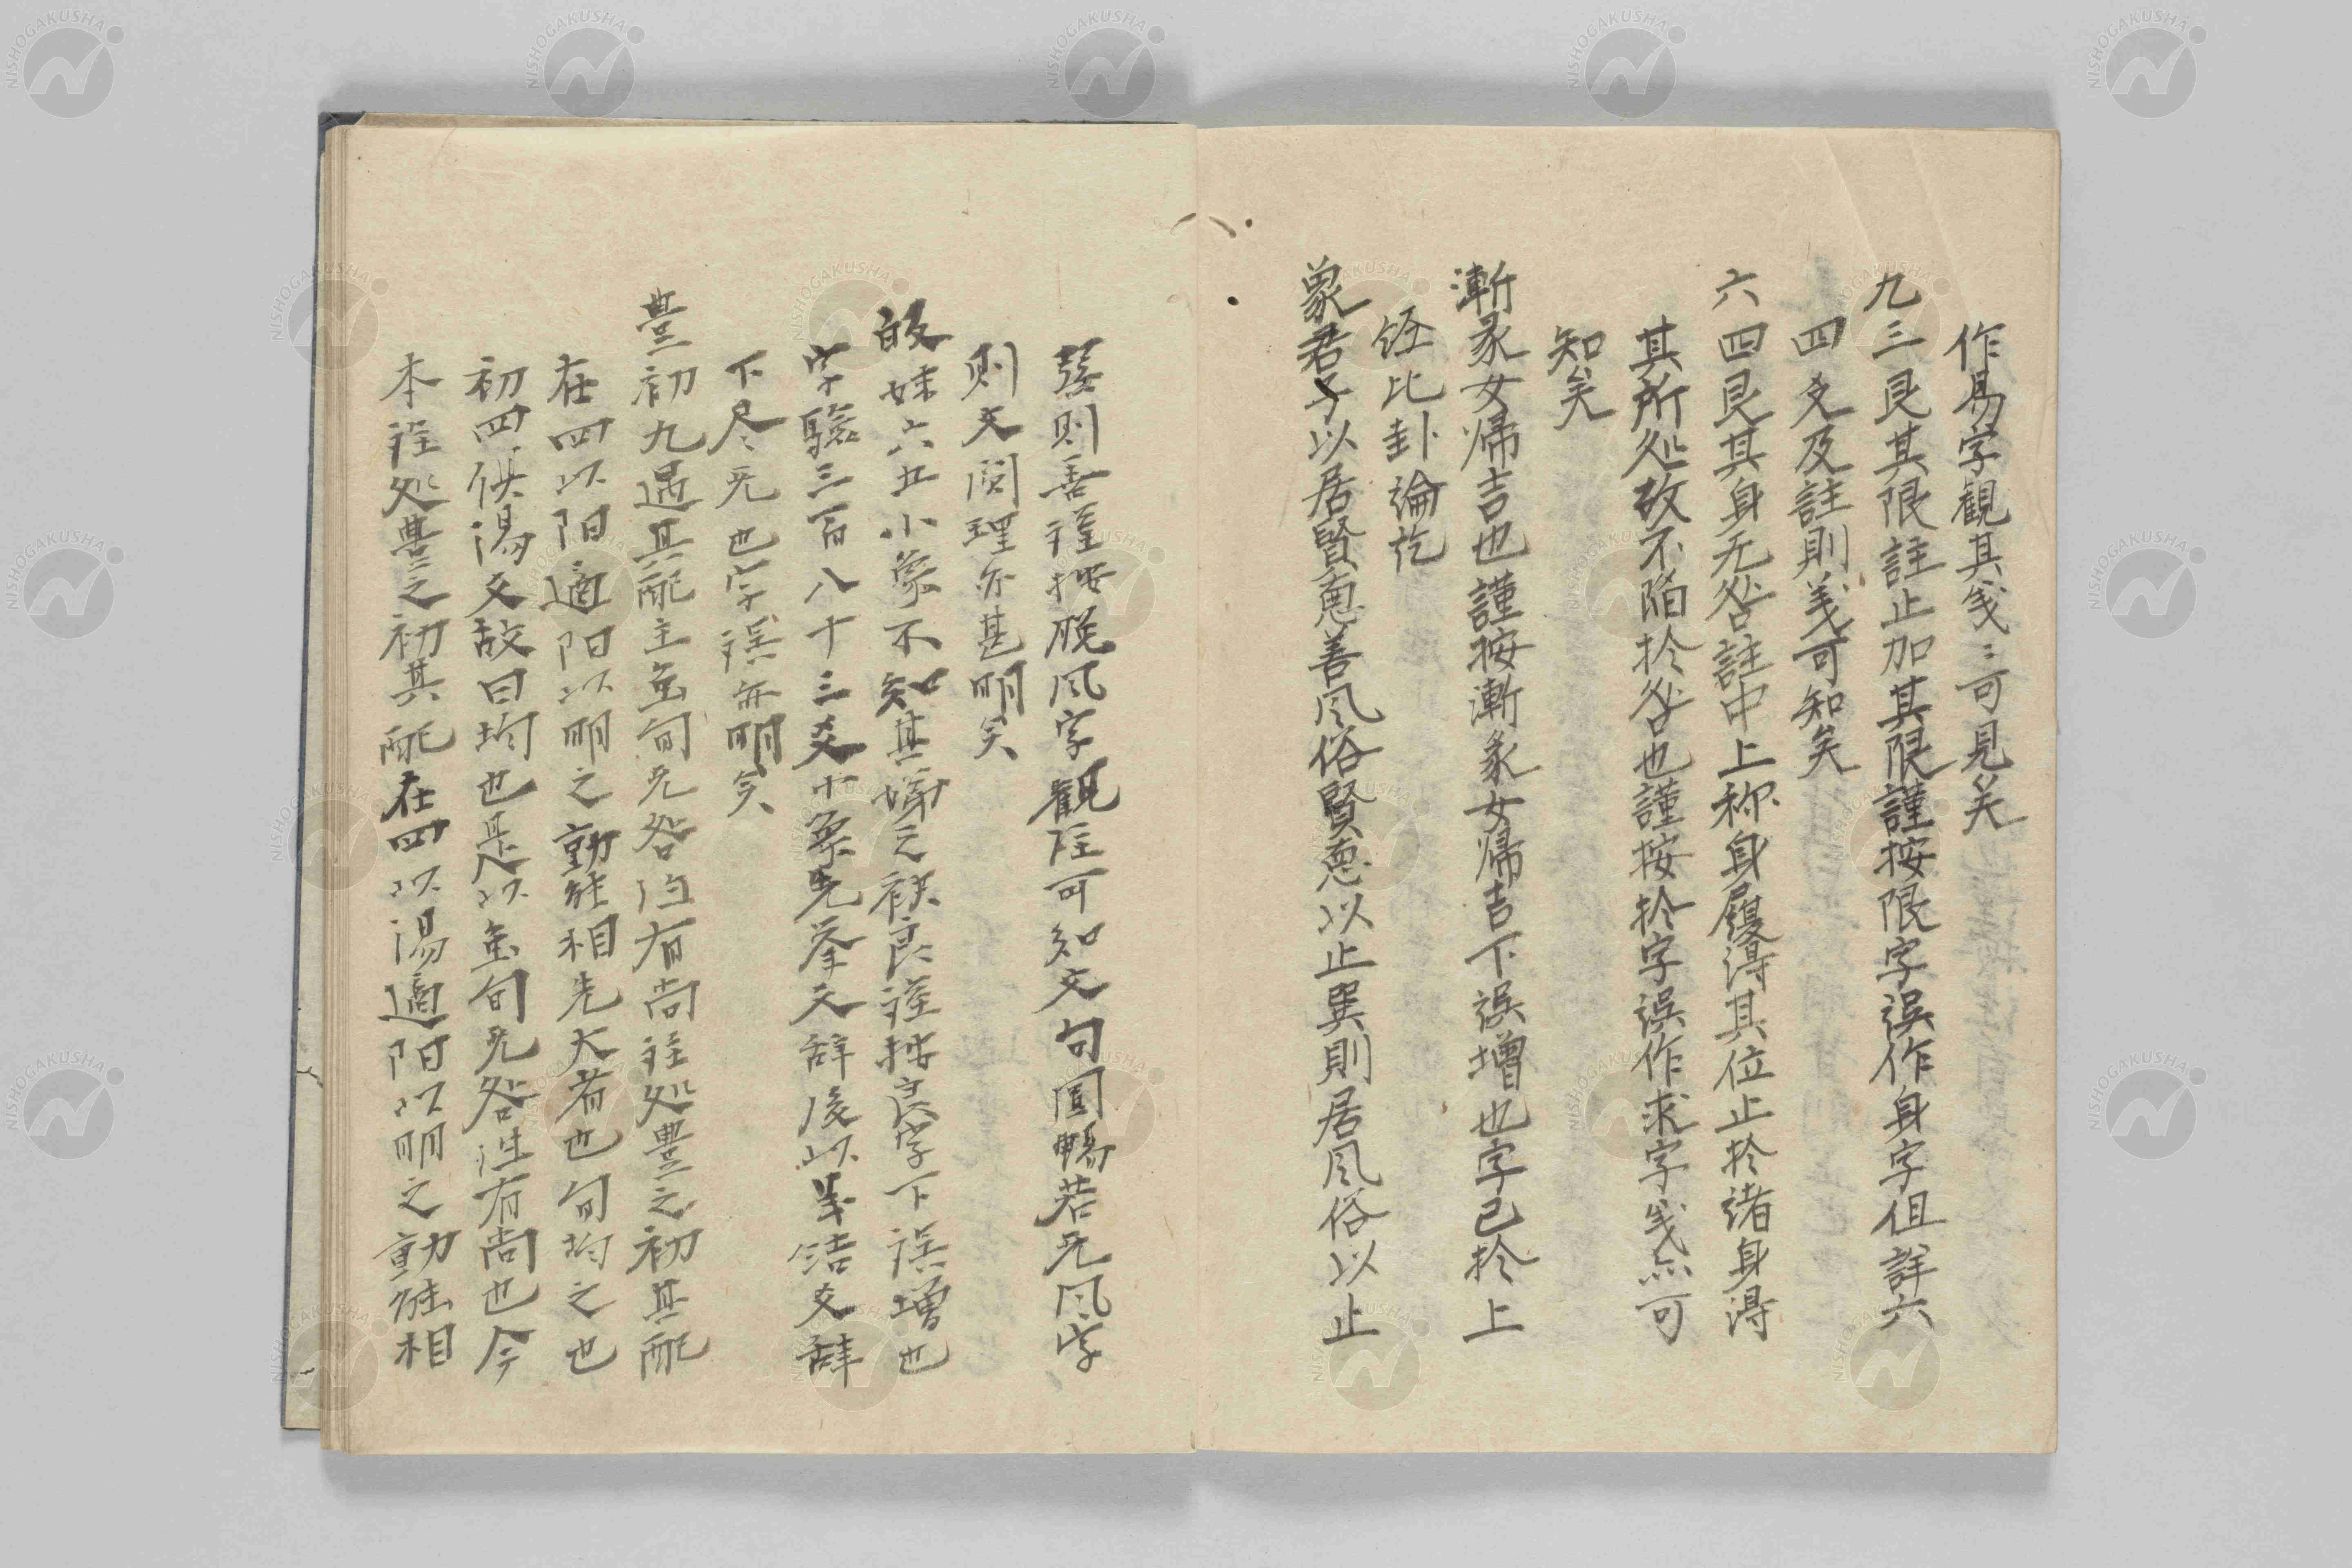 作易字觀其笺〻可見矣
九三艮其限註止加其限謹按限字誤作身字但詳六
四爻及註則義可知矣
六四艮其身无咎註中上称身履得其位止於諸身得
其所処故不陥於咎也謹按於字誤作求字笺点可
知矣
漸彖女帰吉也謹按漸彖女帰吉下誤增也字已於上
経比卦論訖
象君子以居賢悳善风俗賢悳以止巽則居风俗以止
則善謹按脱风字觀註可知文句圓暢若无风字
則文闕理亦甚明矣
妹六五小象不知其娣之袂良謹按良字下誤增也
字驗三百八十三爻小象先挙爻辞後以義結爻辞
下尽无也字誤亦明矣
豊初九遇其配主虽旬无咎徃有尚註処豊之初其配
在四以阳適阳以明之動能相光大者也旬均之也
初四俱陽爻故曰均也是以虽旬无咎徃有尚也今
本註処豊之初其配在四以陽適阳以明之動能相